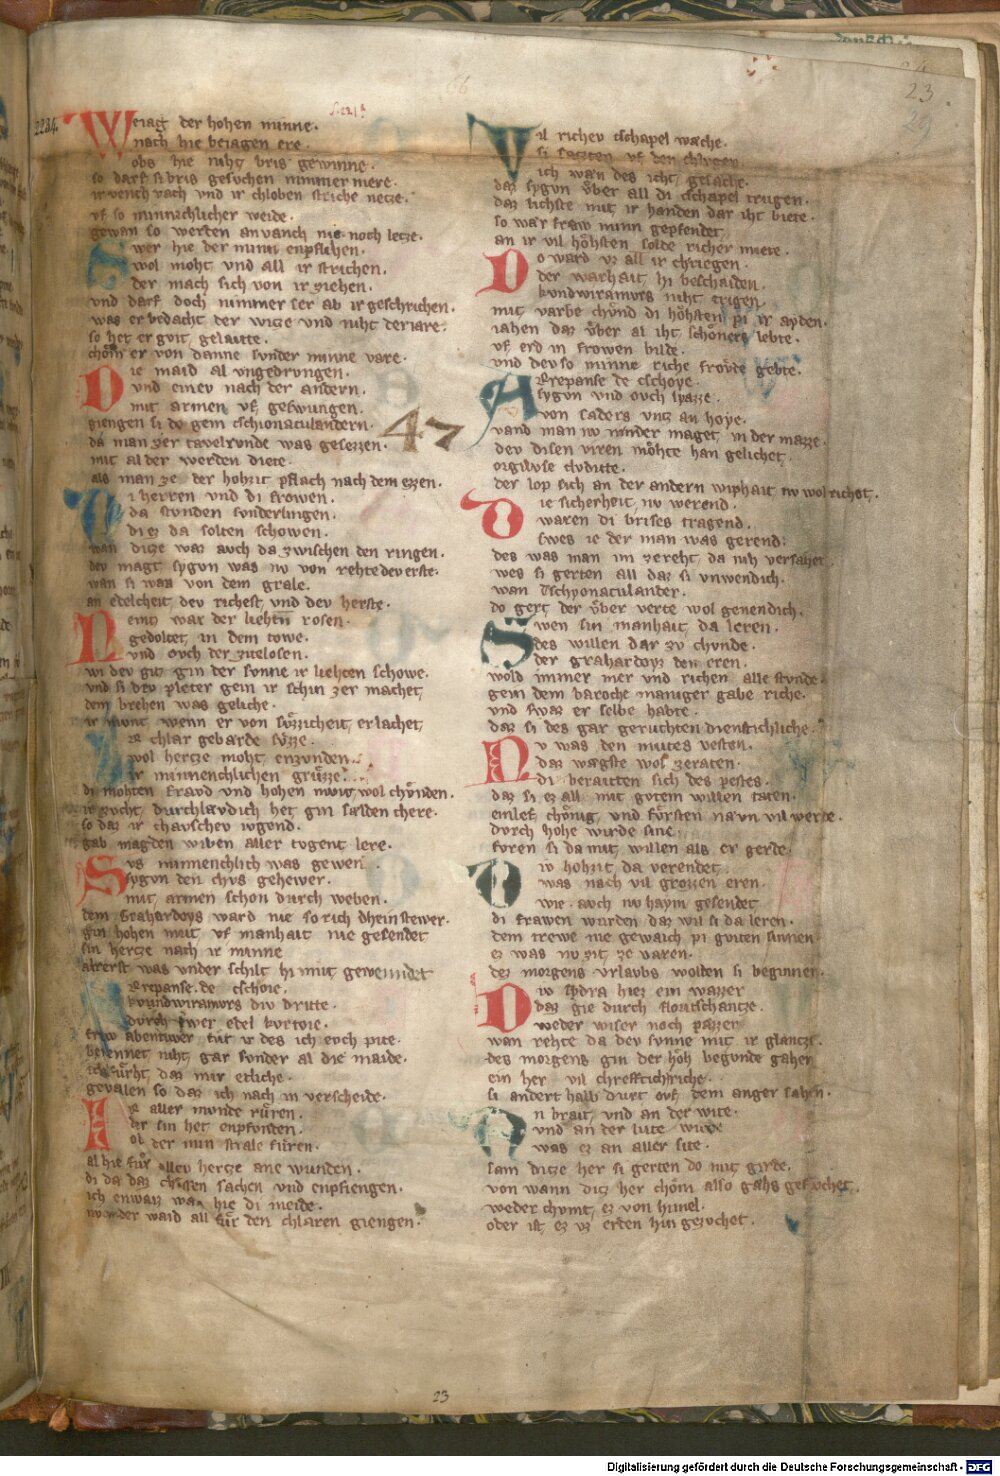 23
2234
Weiag der hohen minne.
nach hie beiagen ere.
obs hie niht bris gewinne.
so darf si bris gesuchen nimmer mere.
ir vench vach vnd ir chloben striche netze.
vf so minnichlicher weide.
gewan so werden anvanch nie noch letze.
Swer hie der minn enpflihen.
wol moht vnd all ir strichen.
der mach sich von ir ziehen.
vnd darf doch nimmer ser ab ir geschrichen.
was er bedacht der witze vnd niht der iare.
so het er gvit gelaitte.
chom er von danne svnder minne vare.
Die maid al vngedrvngen.
vnd einev nach der andern.
mit armen vf geswungen.
giengen si do gem tschionaculandern.
da man zer tavelrvnde was gesezzen.
mit al der werden diete.
als man ze der hohzit pflach nach dem ezzen.
47
Di herren vnd di frowen.
da stvnden svnderlingen.
di ez da solten schowen.
wan ditze waz auch da zwischen den ringen.
dev magt sygvn was nv von rehte dev erste.
wan si was von dem grale.
an edelcheit dev richest vnd dev herste.
Neintz war der liehtn rosen.
gedoltet in dem towe.
vnd ovch der zitelosen.
wi dev git gin der svnne ir liehten schowe.
vnd si drv pleter gein ir schin zer machet
dem brehen was geliche.
ir mvnt wenn er von svzzicheit erlachet
Ir chlar gebarde svzze.
wol hertze moht enzvnden.
ir minnenchlichen grvzze.
di mohten fravd vnd hohen mvot wol chvnden.
ir zvcht durchlavdich het gin sælden chere.
so daz ir chavschev ivgend.
gab magden wiben aller tvgent lere.
Svs minnenchlich was gewen
sygvn den chvs gehewer.
mit armen schon durch weben.
dem Grahardoys ward nie so rich dhein stewer.
gin hohen mut vf manhait nie gesendet
sin hertze nach ir minne
alrerst was vnder schilt hi mit gewennidet
Arrepanse de tschoie.
kvndwiramvrs div dritte.
durch iwer edel kvrtoie.
frow abentiwer für ir des ich evch pitte.
benennet niht gar svnder al die maide.
ich fürht daz mir etliche.
gevalen so daz ich nach in verscheide.
Ir aller mvnde rüren.
der sin het enpfvnden.
ob der min strale füren.
al hie für allev hertze ane wunden.
di da daz chussen sachen vnd enpfiengen.
ich enwaiz wa hie di meide.
wunder waid all für den chlaren giengen.
Vil richev tschapel wæche.
si satzten vf den chlaren
ich wæn des iht gesache.
daz sygvn vber all di tschapel trugen.
daz lichste mit ir handen dar iht biete.
so wær fraw minn gepfendet
an ir vil höhsten solde richer miete.
Do ward vz all ir chriegen.
der warhait hi beschaiden.
kvndwiramvrs niht trigen
mit varbe chvnd di höhsten pi ir ayden.
iahen daz vber al iht schöners lebte.
vf erd in frowen bilde.
vnd dev so minne riche frövde gebte.
Arrepanse de tschoye.
sygvn vnd ovch ipazze.
von saders vntz an hoye.
vand man nv minder maget in der mazze.
dev disen viren möhte han gelichet.
orgilvse clvditte.
der lop sich an der andern wiphait nv wol richet.
Die sicherheit nv werend.
waren di brises tragend.
swes ie der man was gerend.
des was man im zereht da nih versaget
wes si gerten all daz si vnwendich.
wan Tschyonaculander.
do gert der vber verte wol genendich.
Swen sin manhait da leren.
des willen dar zv chvnde.
der grahardoyz den eren.
wold immer mer vnd richen alle stvnde.
gein dem baroche maniger gabe riche.
vnd swaz er selbe habte.
daz si des gar geruchten dienstichliche.
Nv was den mvtes vesten.
daz wægste wol zeraten.
di beraitten sich des pestes.
daz si ez all mit gvtem willen taten.
einlef chönig vnd fürsten navn vil werde.
dvrch hohe wirde sine.
fvren si da mit willen als er gerde.
Div hohzit da verendet
was nach vil grozzen eren.
wie avch nv haym gesendet
di frawen wurden daz wil si da leren.
dem trewe nie gewaich pi gvten sinnen
ez was nv zit ze varen.
dez morgens vrlavbs wolden si beginnen.
Div ipdra hiez ein wazzer
daz gie durch floritschantze.
weder wiser noch pazzer
wan rehte da dev svnne mit ir glantze.
des morgens gin der höh begvnde gahen
ein her vil chrefftichriche.
si andert halb durt ovf dem anger sahen.
In brait vnd an der wite.
vnd an der lute wirde
was ez an aller site.
sam ditze her si gerten do mit girde.
von wann ditz her chöm also gahs gesvchet.
weder chvmt ez von himel.
oder ist ez vz erden hin gezvchet.
23
Digitalisierung gefördert durch die Deutsche Forschungsgemeinschaft - DFG